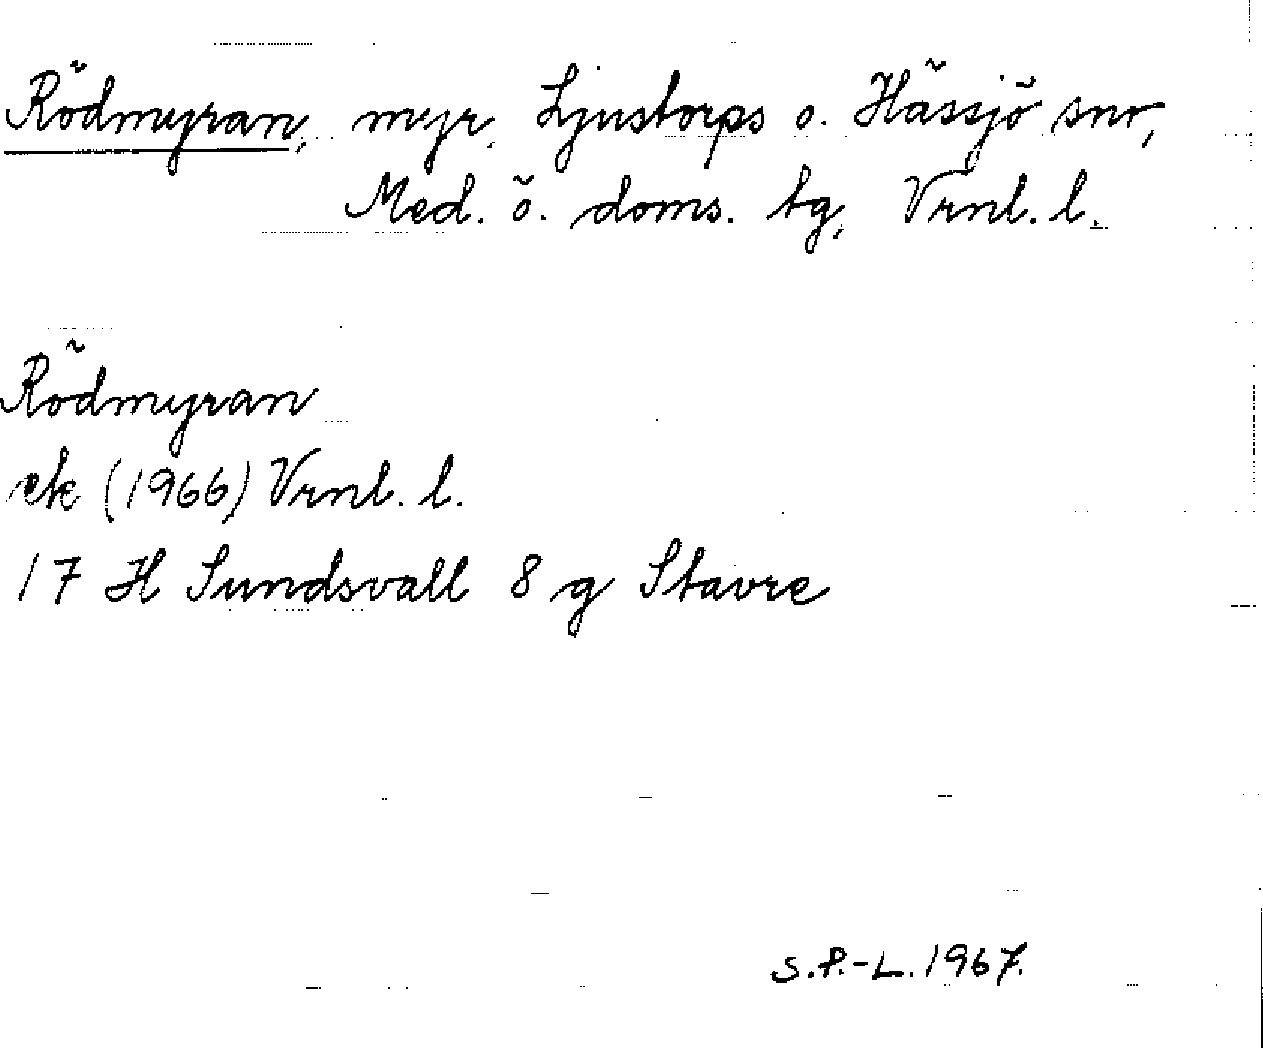 Rödmyran, myr, Ljustorps o. Hässjö snr,
Med. ö. doms. tg, Vrnl. l.
Rödmyran
ek (1966) Vrnl. l.
17 H Sundsvall 8 g Stavre
S.P.-L. 1967.